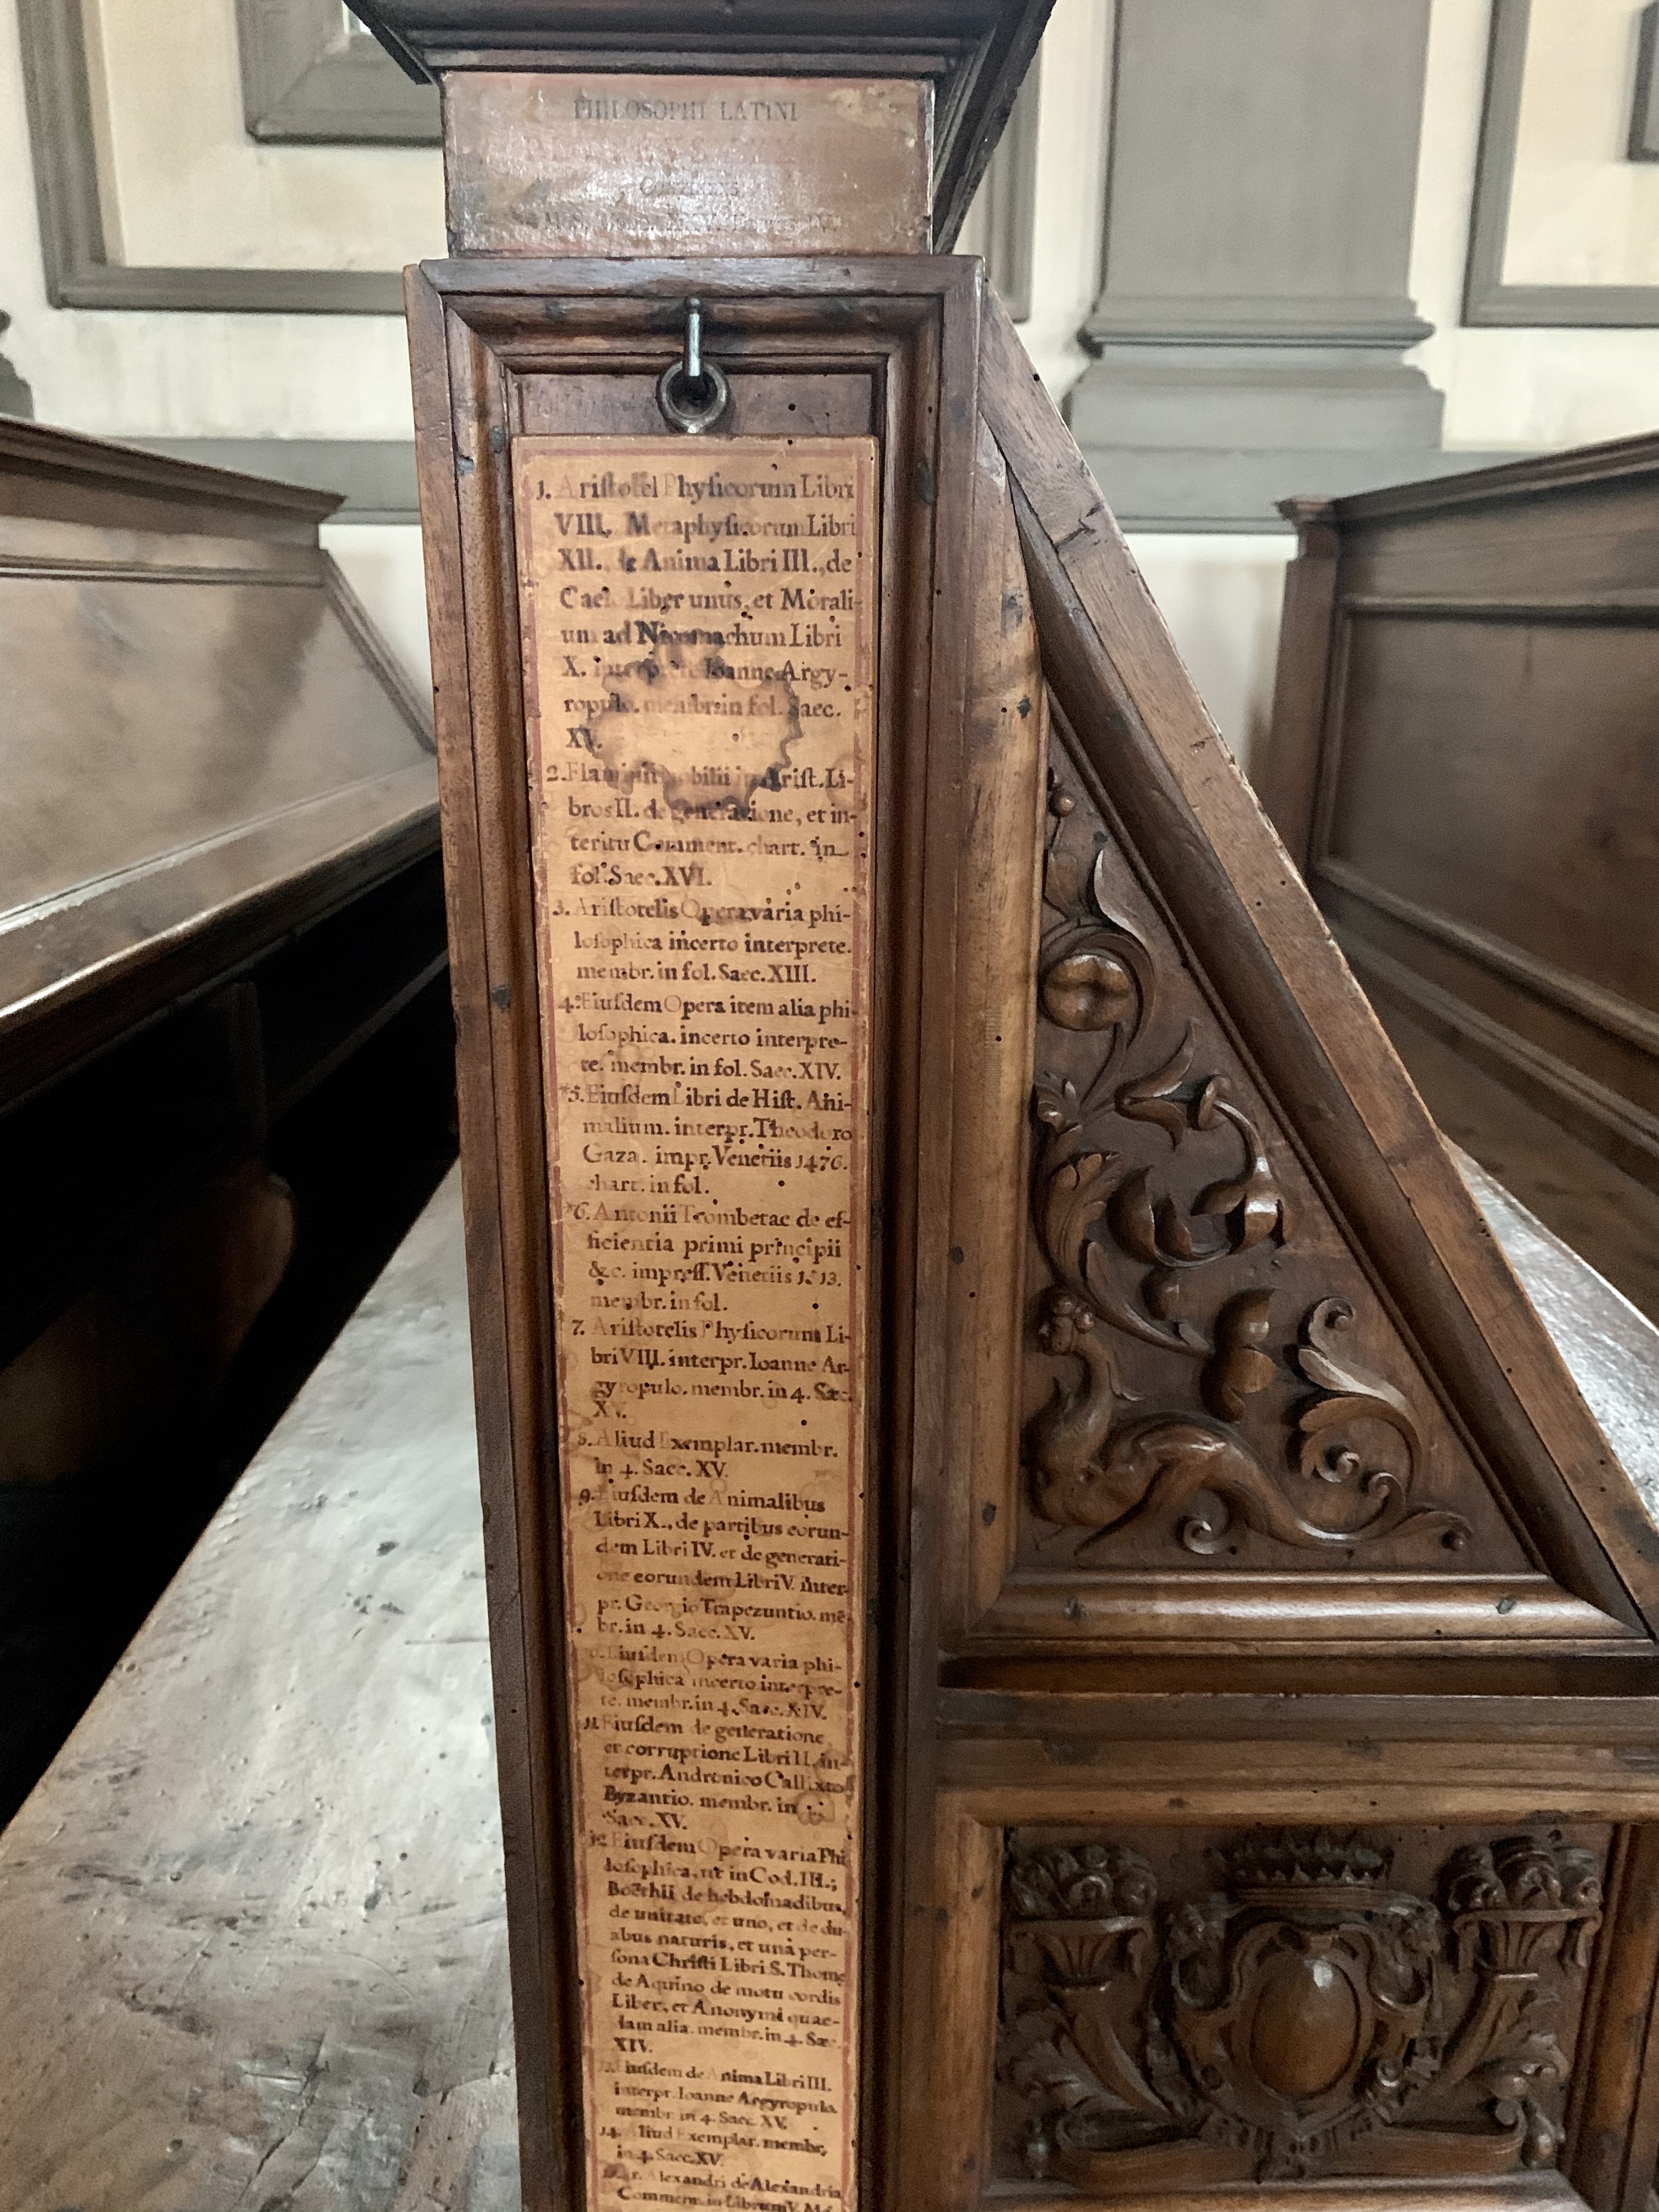 PHILOSOPHI LATINI
1. Aristotel Physicorum Libri
VIII. Metaphysicorum Libri
XII. de Anima Libri III., de
Cael Liber unus, et Morali-
um ad Nicomachum Libri
X. interprete Ioanne Argy-
ropulo. membr. in fol. Saec.
XV.
2. Flaminii Nobilii in Arist. Li-
bros II. de generatione, et in-
teritu Comment. chart. in
fol. Saec. XVI.
3. Aristotelis Opera varia phi-
losophica incerto interprete.
membr. in fol. Saec. XIII.
4. Eiusdem Opera item alia phi-
losophica. incerto interpre-
te. membr. in fol. Saec. XIV.
5. Eiusdem Libri de Hist. Ani-
malium. interpr. Theodoro
Gaza. impr. Venetiis 1476.
chart. in fol.
6. Antonii Trombetae de ef-
ficientia primi principii
&c. impress. Venetiis 1513.
membr. in fol.
7. Aristotelis Physicorum Li-
bri VIII. interpr. Ioanne Ar-
gyropulo. membr. in 4. Sæc.
XV.
8. Aliud Exemplar. membr.
in 4. Saec. XV.
9. Eiusdem de Animalibus
Libri X., de partibus eorun-
dem Libri IV. et de generati-
one eorundem Libri V. inter-
pr. Georgio Trapezuntio. mē
br. in 4. Saec. XV.
10. Eiusdem Opera varia phi-
losophica incerto interpre-
te. membr. in 4. Saec. XIV.
11. Eiusdem de generatione
et corruptione Libri II. in-
terpr. Andronico Callixto
Byzantio. membr. in
Saec. XV.
12. Eiusdem Opera varia Phi
losophica, ut in Cod. III.;
Boëthii de hebdomadibus,
de unitate, et uno, et de du-
abus naturis, et unâ per-
sona Christi Libri S. Thomę
de Aquino de motu cordis
Liber, et Anonymi quae-
dam alia. membr. in 4. Sæc.
XIV.
13. Eiusdem de Anima Libri III.
interpr. Ioanne Argyropulo.
membr. in 4. Saec. XV.
14. Aliud Exemplar. membr.
in 4. Saec. XV.
Alexandri de Alexandria
Comment. in Librum V.